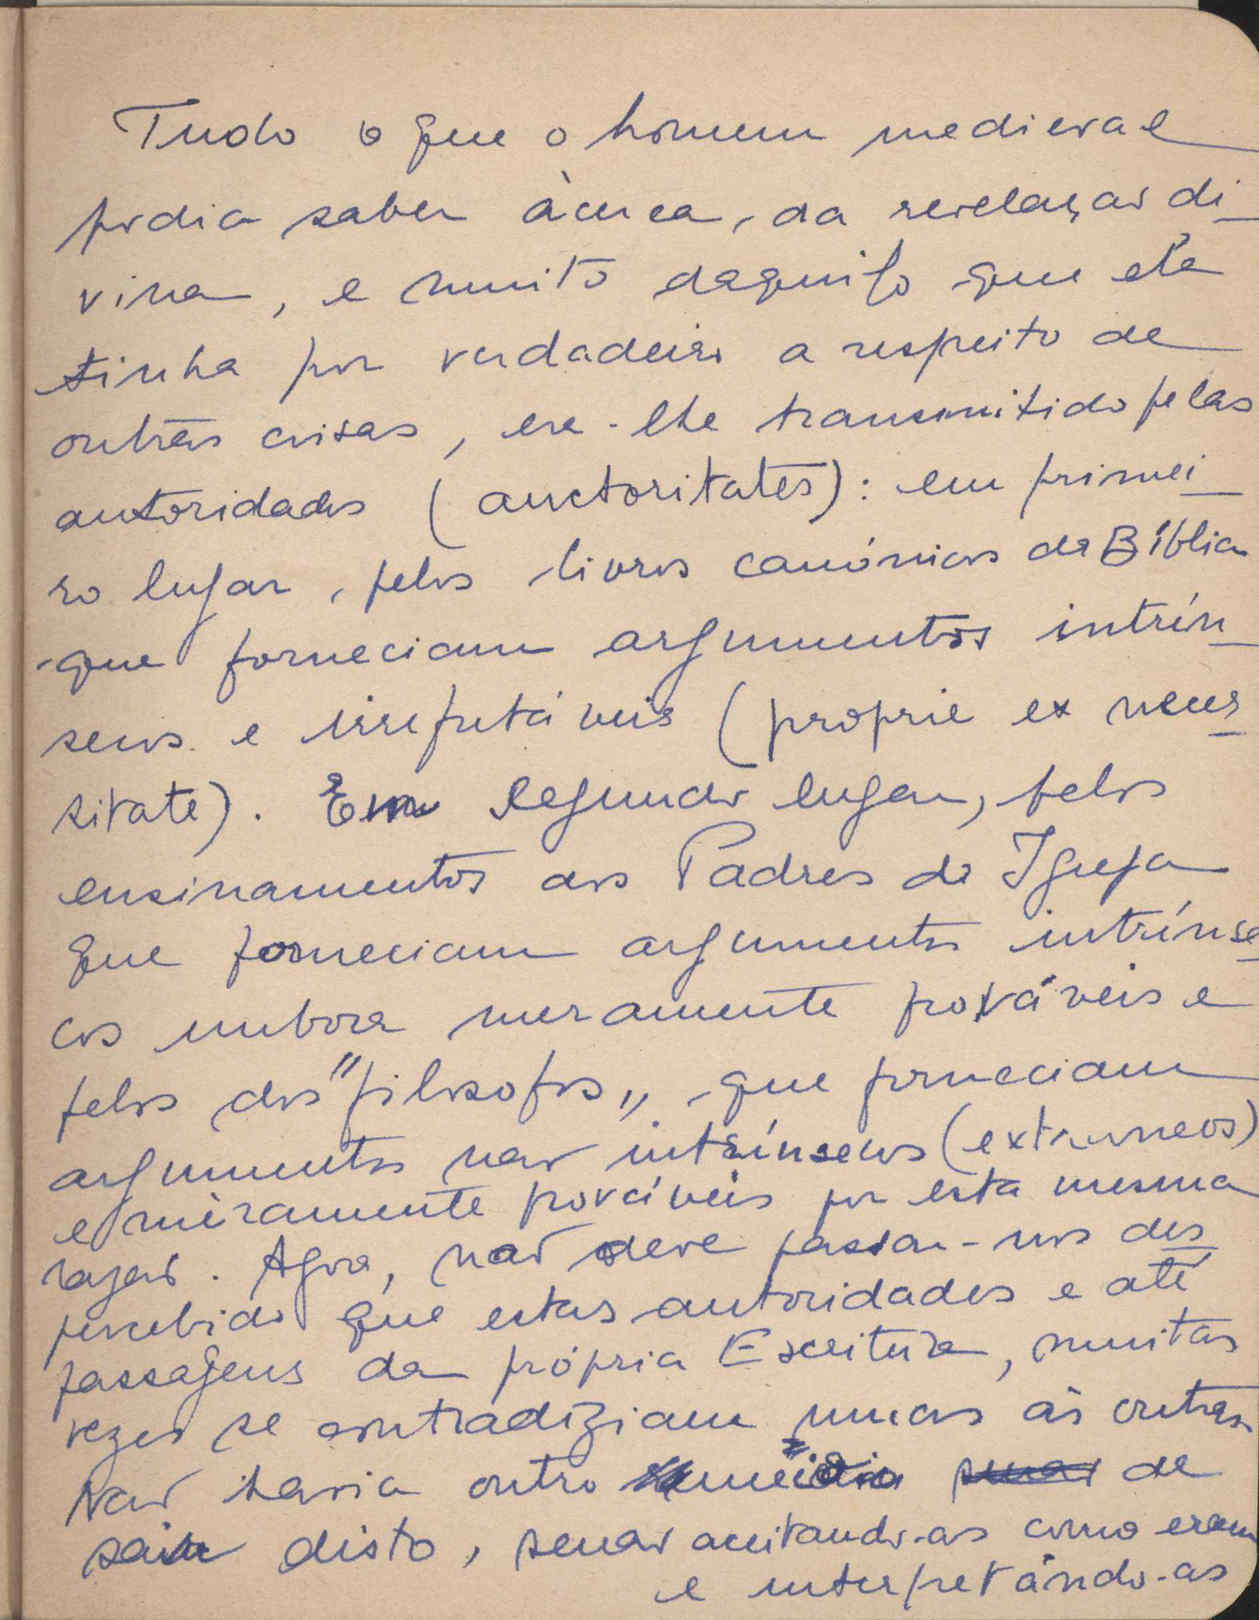 Tudo o que o homem medieval
podia saber àcerca, da revelação di-
vina, e muito daquilo que ele
tinha por verdadeiro a respeito de
outras coisas, era-lhe transmitido pelas
autoridades (auctoritates): em primei-
ro lugar, pelos livros canónicos da Bíblia
que forneciam argumentos intrín-
secos e irrefutáveis (proprie ex neces-
sitate). Em segundo lugar, pelos
ensinamentos dos Padres da Igreja
que forneciam argumentos intrínse-
cos embora meramente prováveis e
pelos dos "filosofos", que forneciam
argumentos não intrínsecos (extraneos)
e mèramente prováveis por esta mesma
razão. Agora, não deve passar-nos des-
percebido que estas autoridades e até
passagens da própria Escritura, muitas
vezes se contradiziam umas às outras.
Não havia outro meio de
sair disto, senão aceitando-as como eram
e interpretándo-as